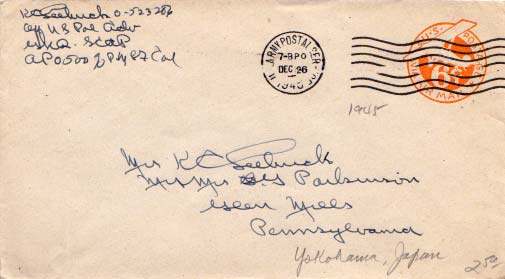 K C Seebuck O-523286
Off US Pol Adv
GHQ. SCAP
APO 500 % PM SF Cal
U.S. ARMY POSTAL SER.
7-8 PO
DEC 26
1945
U.S. POSTAGE
6¢
VIA AIR MAIL
1945
Mrs K C Seebuck
Mrs Parkinson
Glen Mills
Pennsylvania
Yokohama, Japan
2.50